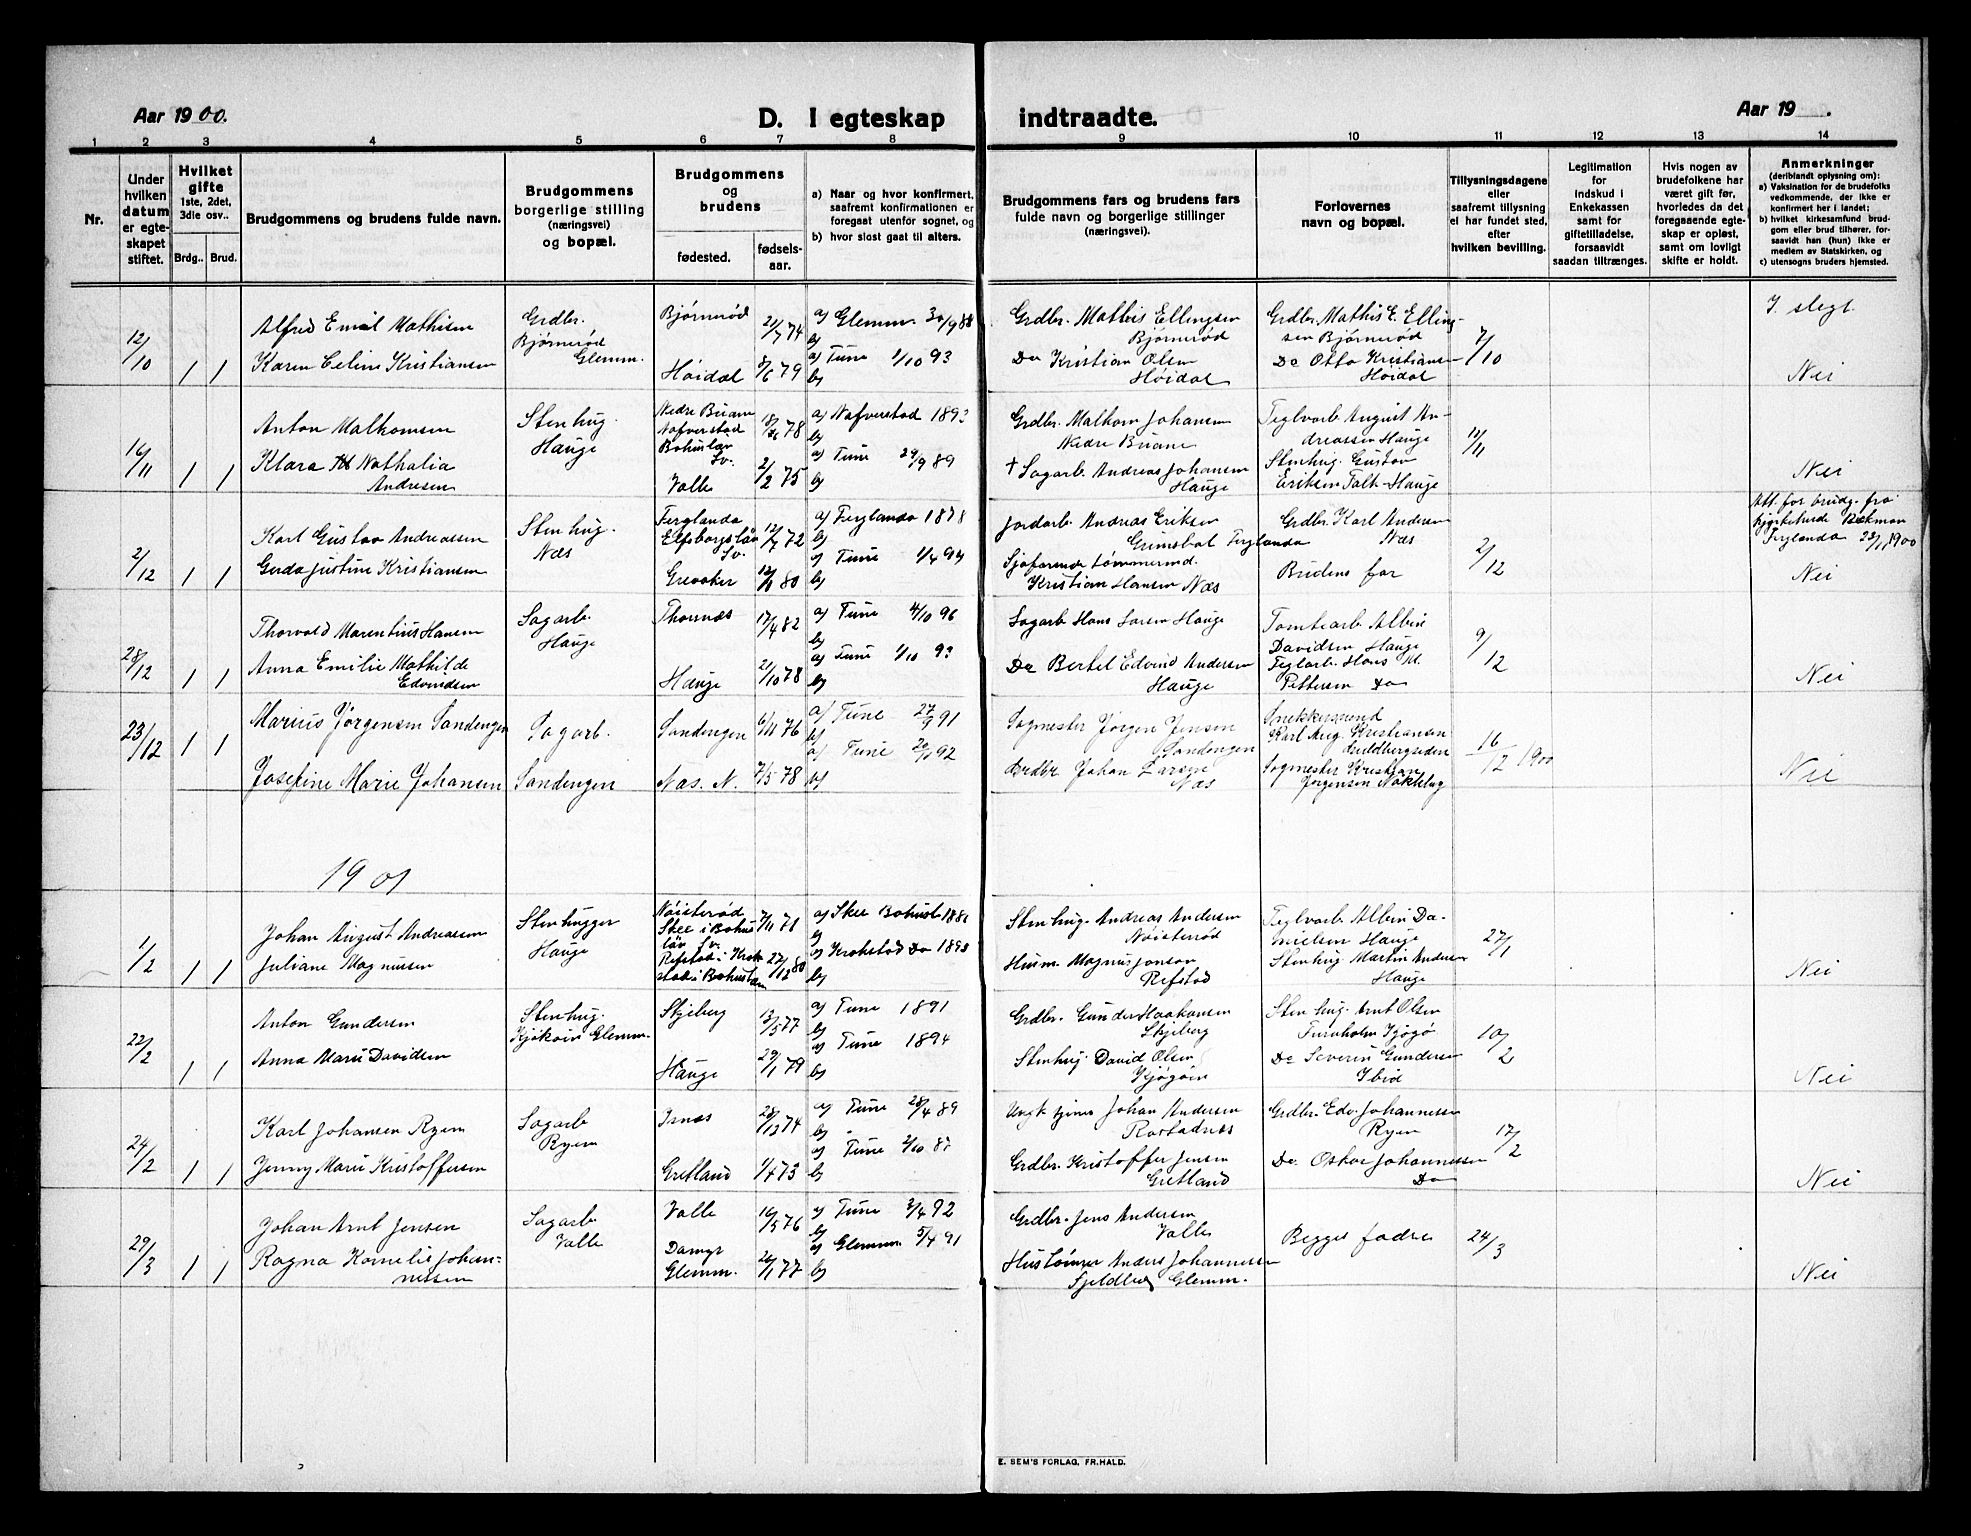 Aar 1900.
D. I egteskap indtraadte.
Aar 19 .
1 2 3 4 5 6 7 8 9 10 11 12 13 14
Nr.
Under hvilken datum er egteskapet stiftet.
Hvilket gifte 1ste, 2det, 3die osv..
Brdg.. Brud.
Brudgommens og brudens fulde navn.
Brudgommens borgerlige stilling (næringsvei) og bopæl.
Brudgommens og brudens
fødested. fødselsaar.
a) Naar og hvor konfirmert, saafremt konfirmationen er foregaat utenfor sognet, og
b) hvor sidst gaat til alters.
Brudgommens fars og brudens fars fulde navn og borgerlige stillinger (næringsvei).
Forlovernes navn og bopæl.
Tillysningsdagene eller saafremt tillysning ei har fundet sted, efter hvilken bevilling.
Legitimation for indskud i Enkekassen samt for giftetilladelse, forsaavidt saadan tiltrænges.
Hvis nogen av brudefolkene har været gift før, hvorledes da det foregaaende egteskap er opløst, samt om lovligt skifte er holdt.
Anmerkninger (deriblandt oplysning om):
a) Vaksination for de brudefolks vedkommende, der ikke er konfirmert her i landet;
b) hvilket kirkesamfund brudgom eller brud tilhører, forsaavidt han (hun) ikke er medlem av Statskirken, og
c) utensogns bruders hjemsted.
12/10 1 1
Alfred Emil Mathisen
Karen Celine Kristiansen
Grdbr.
Bjørnerød
Glemm.
Bjørnerød 21/7 74
Høidal 8/6 79
a) Glemm. 30/9 88
b)
a) Tune 1/10 93
b)
Grdbr. Mathis Ellingsen
Bjørnerød
Do Kristian Olsen
Høidal
Grdbr. Mathis E. Elling-
sen Bjørnerød
Do Otto Kristiansen
Høidal
7/10
I slegt.
Nei
16/11 1 1
Anton Malkomsen
Klara Nathalia
Andresen
Stenhug.
Hauge
Nedre Buane
Nafverstad
Bohuslän
Sv. 78
Valle 2/2 75
a) Nafverstad 1893
b)
a) Tune 29/9 89
b)
Grdbr. Malkom Johansen
Nedre Buane
† Sagarb. Andreas Johansen
Hauge
Teglverb. August An-
dreassen Hauge
Stenhug. Gustav
Eriksen Falk-Hauge
11/11
Nei
2/12 1 1
Karl Gustav Andreassen
Gerda Justine Kristiansen
Stenhug.
Næs
Ferglanda
Elfsborgslän
Sv. 12/7 72
Greaaker 80
a) Ferglanda 1878
b)
a) Tune 1/4 94
b)
Jordarb. Andreas Eriksen
Grimsbol Ferglanda
Sjøfarende tømmermd.
Kristian Hansen Næs
Grdbr. Karl Andersen
Næs
Brudens far
2/12
Att. for brudg. fra
kyrkoherde
Ferglanda 1900
Nei
28/12 1 1
Thorvald Marentius Hansen
Anna Emilie Mathilde
Edvindsen
Sagarb.
Hauge
Thornæs 17/4 82
Hauge 21/10 78
a) Tune 4/10 96
b)
a) Tune 1/10 93
b)
Sagarb Hans Larsen Hauge
Do Bertel Edvind Andersen
Hauge
Tomtearb Albin
Davidsen Hauge
Teglarb. Hans M.
Pettersen Do
9/12
Nei
23/12 1 1
Marius Jørgensen Sandengen
Josefine Marie Johansen
Sagarb.
Sandengen
Sandengen 6/11 76
Næs. N. 7/5 78
a) Tune 27/9 91
b)
a) Tune 92
b)
Sagmester Jørgen Jensen
Sandengen
Grdbr Johan Larsen
Næs
Snekkersvend
Karl Aug. Kristiansen
Guldbergsiden
Sagmester Kristian
Jørgensen Nakkelug
16/12 1900
Nei
1901
1/2 1 1
Johan August Andreassen
Juliane Magnussen
Stenhugger
Hauge
Nøisterød
Skee i Bohus
län Sv. 7/11 71
Refstad i Krok-
stad i Bohuslän 22/12 80
a) Skee Bohusl.
b)
a) Krokstad Do 1895
b)
Stenhug. Andreas Andersen
Nøisterød
Husm. Magnus Jonson
Refstad
Teglverb Albin Da-
nielsen Hauge
Stenhug Martin Andersen
Hauge
27/1
Nei
22/2 1 1
Anton Gundersen
Anna Marie Davidsen
Stenhug.
Kjøkøin Glemm.
Skjeberg 13/5 77
Hauge 29/1 79
a) Tune 1891
b)
a) Tune 1894
b)
Grdbr. Gunder Haakonsen
Skjeberg
Stenhug. David Olsen
Kjøgøin
Stenhug. Arnt Olsen
Furuholm Kjøgø
Do Severin Gundersen
Ibid
10/2
Nei
24/2 1 1
Karl Johansen Ryen
Jenny Marie Kristoffersen
Sagarb
Ryen
Isnæs 28/12 74
Gretland 1/4 73
a) Tune 28/4 89
b)
a) Tune 2/10 87
b)
Johan Andersen
Rostadnæs
Grdbr. Kristoffer Jensen
Gretland
Grdbr. Edv. Johannessen
Ryen
Do. Oskar Johannessen
Do
17/2
Nei
29/3 1 1
Johan Arnt Jensen
Ragna Kornelia Johan-
nessen
Sagarb
Valle
Valle 16/5 76
Damyr
Glemm. 26/1 77
a) Tune 3/4 92
b)
a) Glemm. 5/4 91
b)
Grdbr. Jens Andersen
Valle
Hustømrer Anders Johannessen
Fjeldberg Glemm.
Begges fædre
24/3
Nei
E. SEM'S FORLAG, FR.HALD.